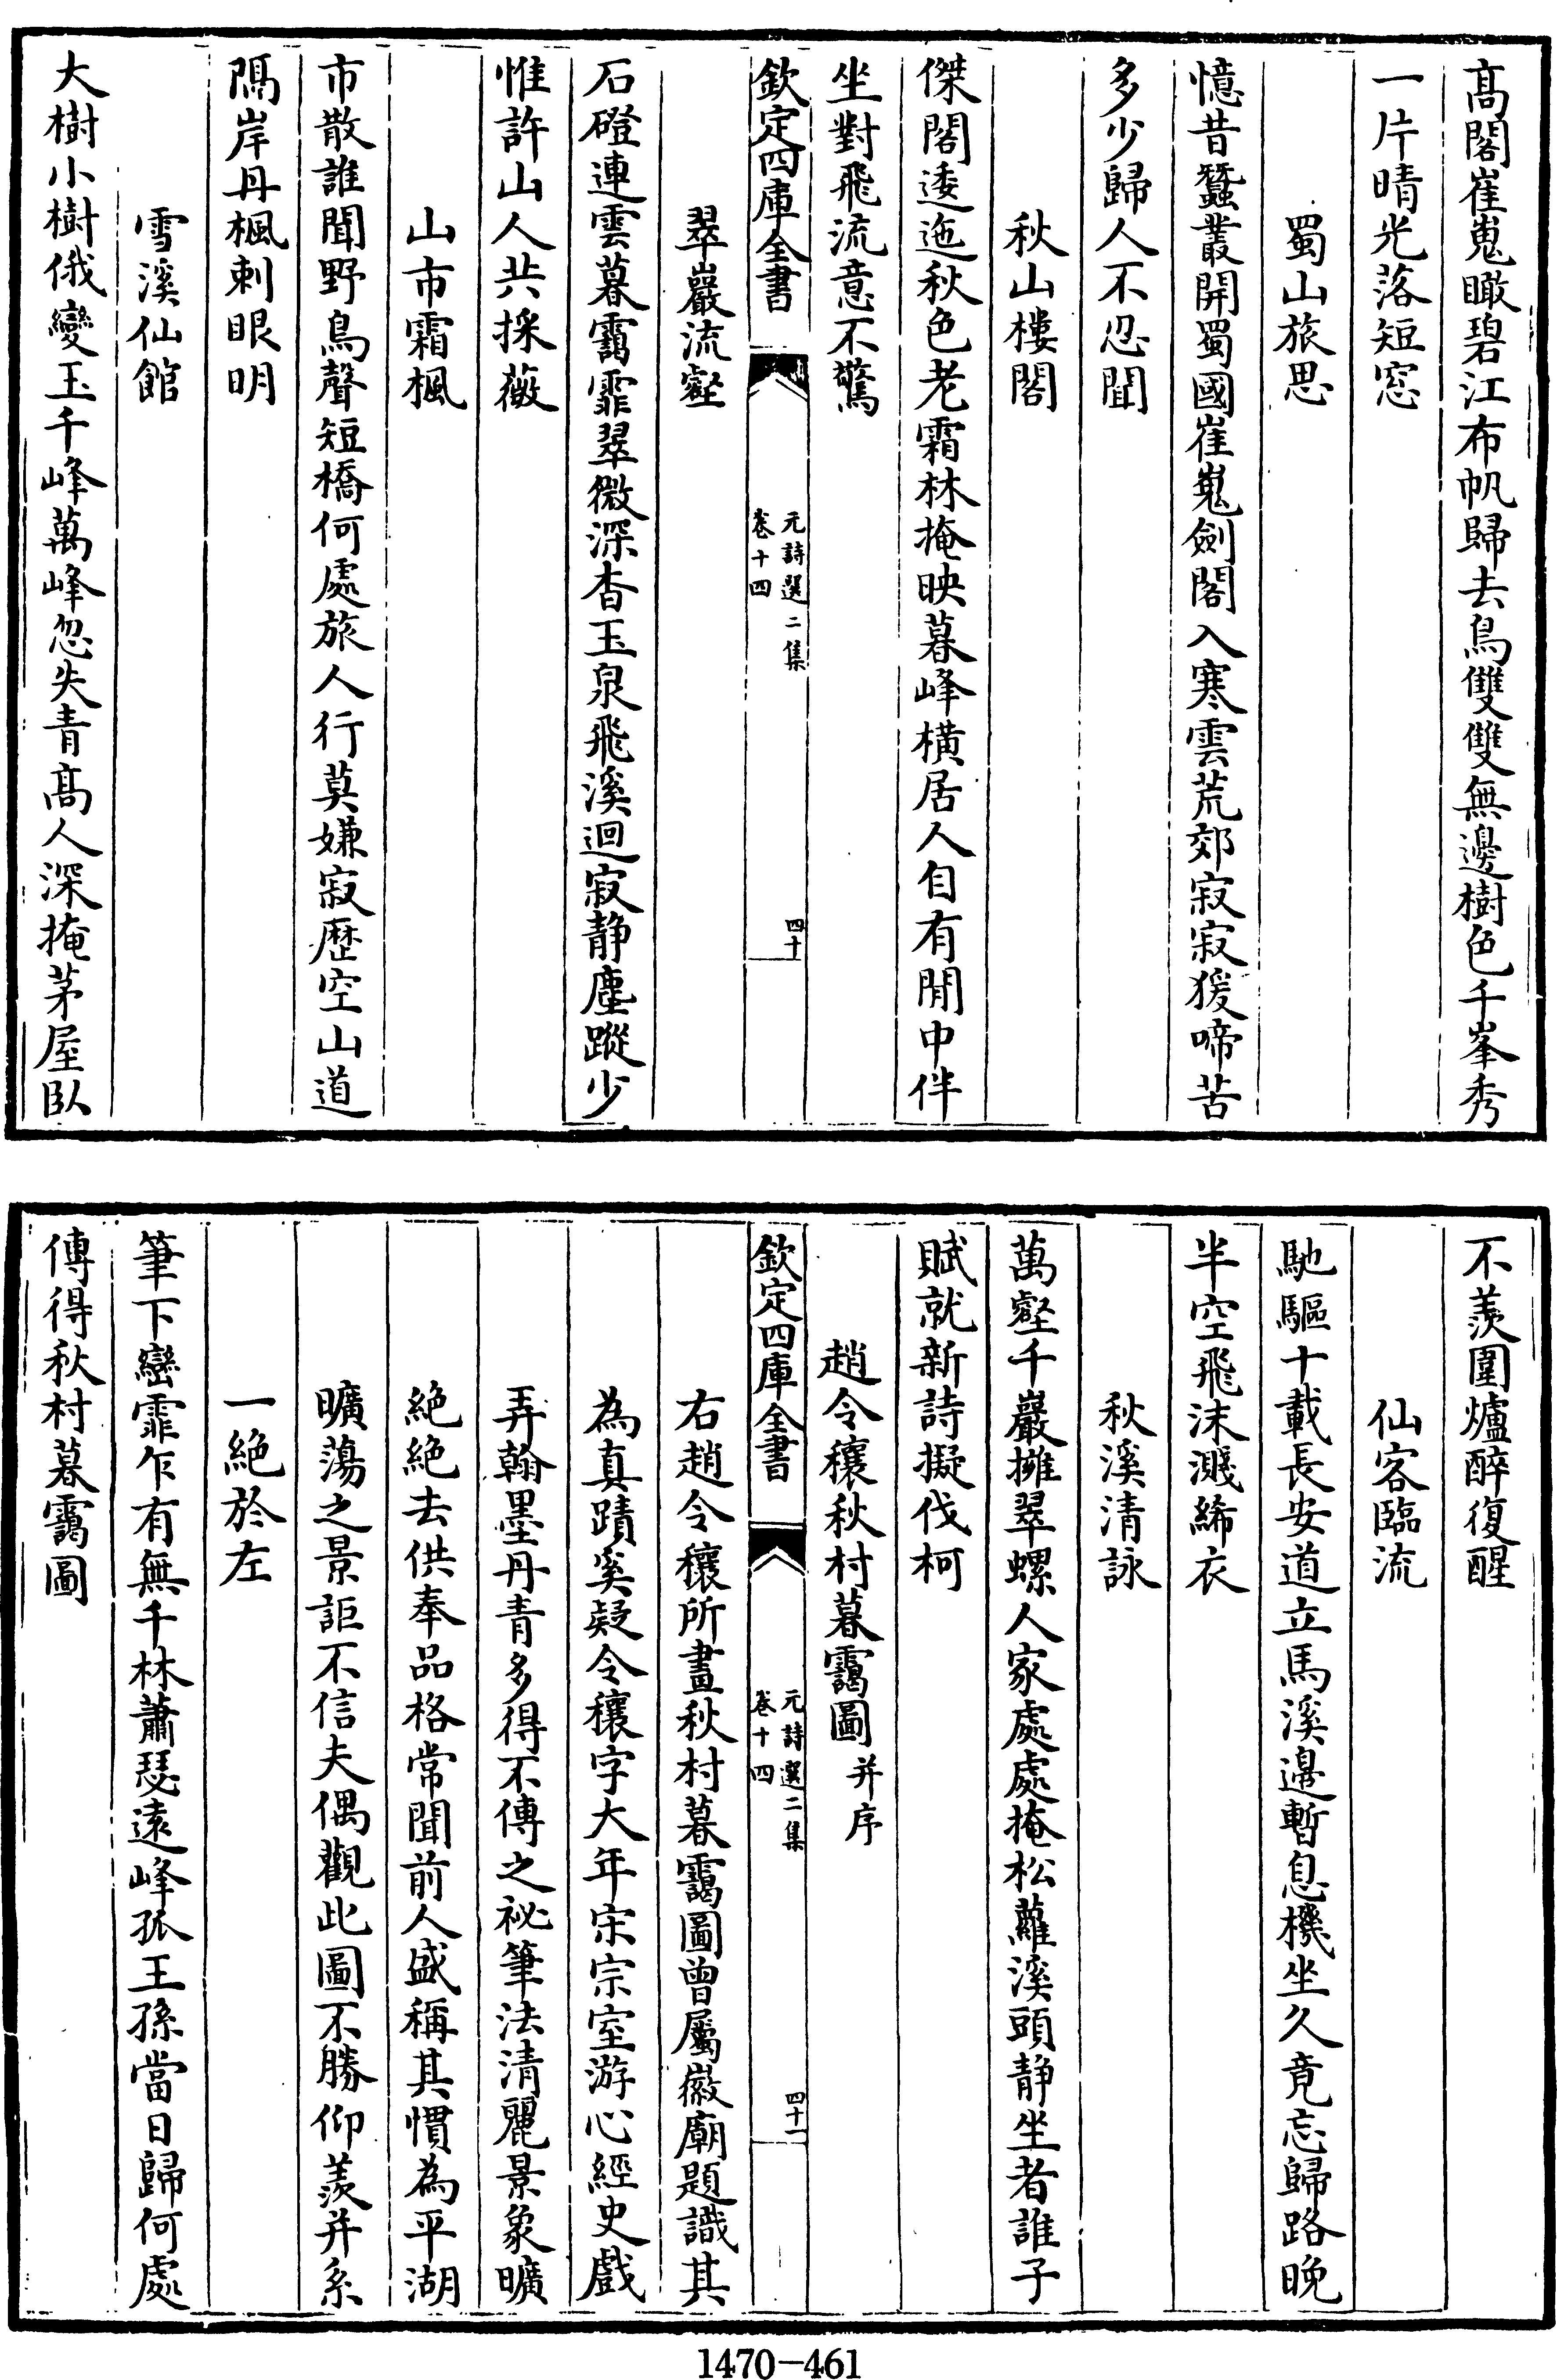 高閣崔嵬瞰碧江布帆歸去鳥雙雙無邊樹色千峯秀
一片晴光落短窓
蜀山旅思
憶昔蠶叢開蜀國崔嵬劍閣入寒雲荒郊寂寂猨啼苦
多少歸人不忍聞
秋山樓閣
傑閣逶迤秋色老霜林掩映暮峰橫居人自有閒中伴
坐對飛流意不驚
欽定四庫全書
元詩選二集
卷十四
四十
翠巖流壑
石磴連雲暮靄霏翠微深杳玉泉飛溪迴寂静塵蹤少
惟許山人共採薇
山市霜楓
市散誰聞野鳥聲短橋何處旅人行莫嫌寂歴空山道
隔岸丹楓刺眼明
雪溪仙館
大樹小樹俄變玉千峰萬峰忽失青高人深掩茅屋臥
不羨圍爐醉復醒
仙客臨流
馳驅十載長安道立馬溪邊暫息機坐久竟忘歸路晚
半空飛沫濺絺衣
秋溪清詠
萬壑千巖擁翠螺人家處處掩松蘿溪頭静坐者誰子
賦就新詩擬伐柯
趙令穰秋村暮靄圖并序
欽定四庫全書
元詩選二集
卷十四
四十一
右趙令穰所畫秋村暮靄圖曾屬徽廟題識其
為真蹟奚疑令穰字大年宋宗室游心經史戲
弄翰墨丹青多得不傳之祕筆法清麗景象曠
絶絶去供奉品格常聞前人盛稱其慣為平湖
曠蕩之景詎不信夫偶觀此圖不勝仰羨并系
一絶於左
筆下巒霏乍有無千林蕭瑟遠峰孤王孫當日歸何處
傳得秋村暮靄圖
1470-461